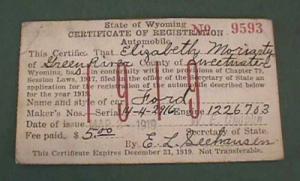 State of Wyoming
No 9593
CERTIFICATE OF REGISTRATION
Automobile
This Certifies That Elizabeth Moriarty
of Green River County of Sweetwater
Wyoming, has in conformity with the provisions of Chapter 79,
Session Laws, 1917, filed in the office of the Secretary of State an
application for the registration of the automobile described below
for the year 1919
Name and style of car Ford
Maker's Nos. Serial Engine 1226703
Date of issue 1919
Secretary of State
Fee paid. $5.00
By E. L.
This Certificate Expires December 31, 1919. Not Transferable.
1919